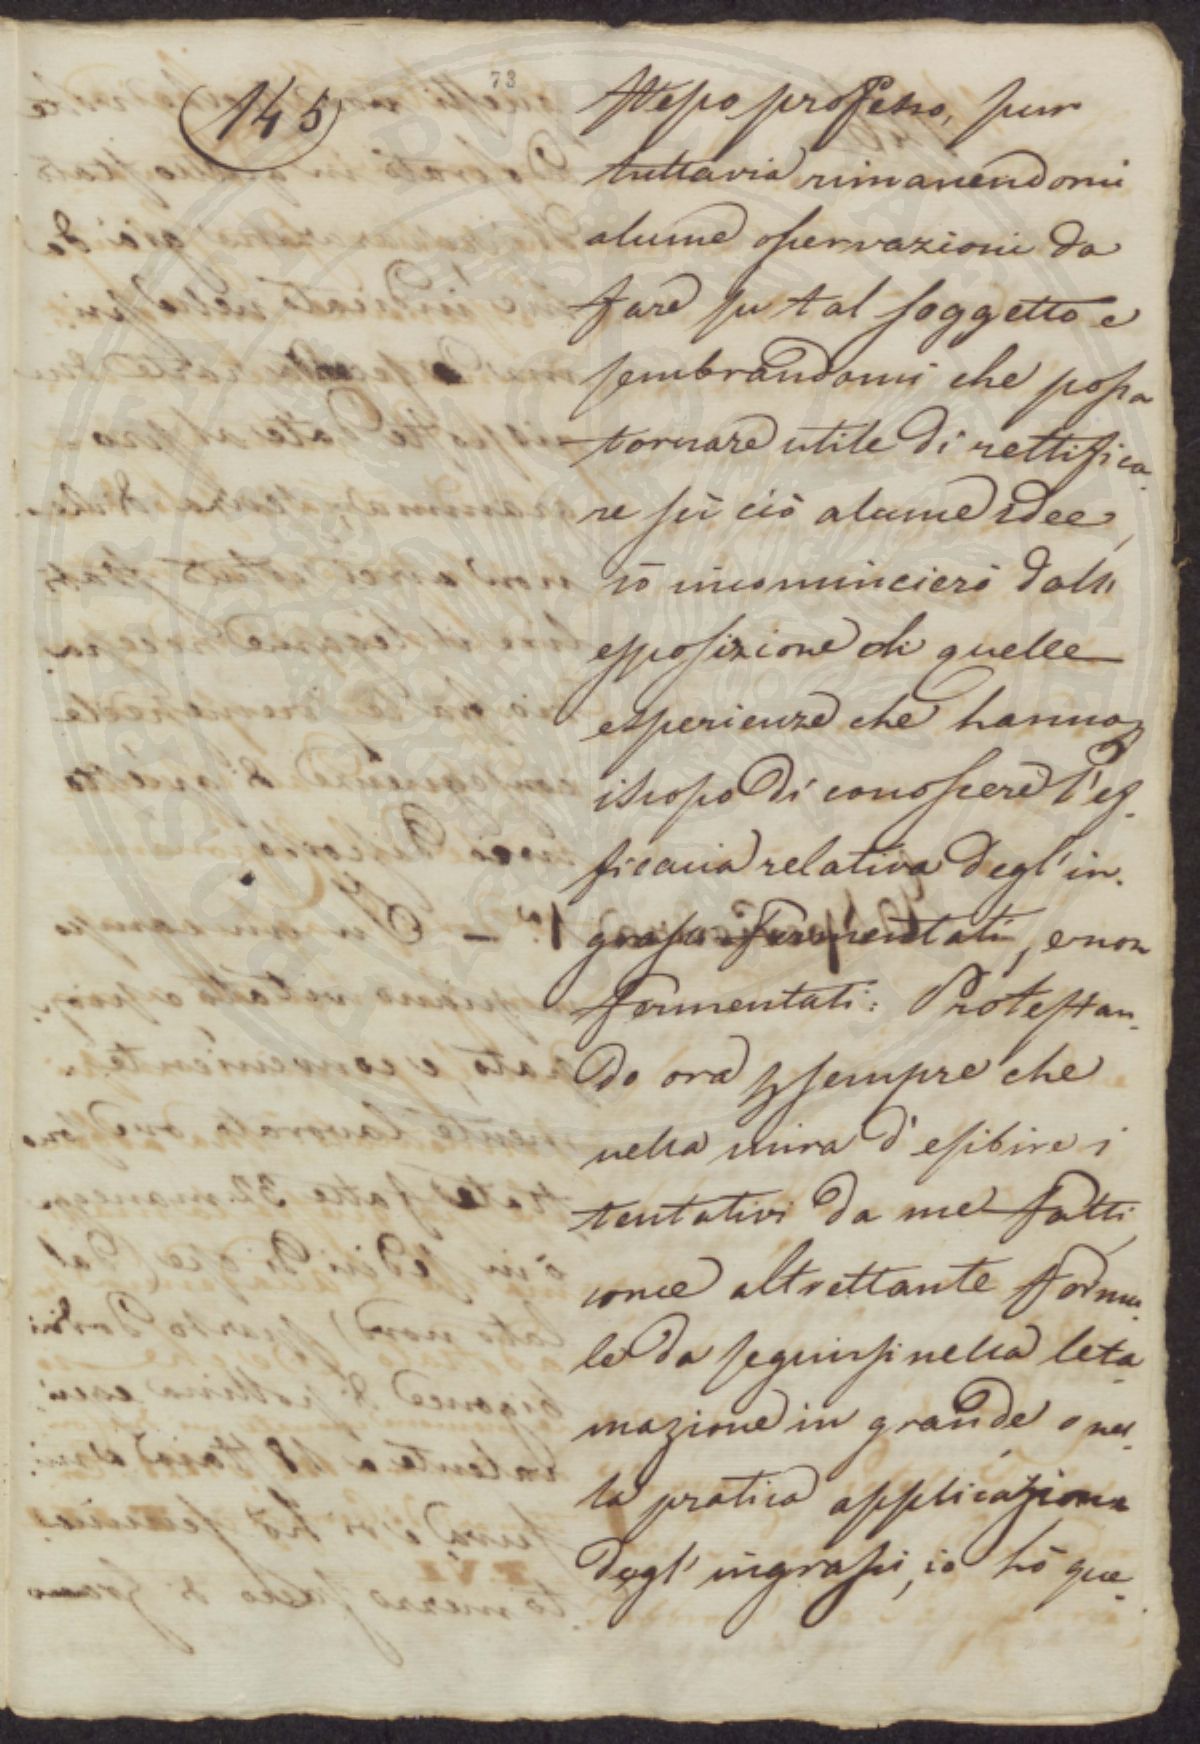 73
145
stesso professo, pur
tuttavia rimanendomi
alcune osservazioni da
fare su tal soggetto e
sembrandomi che possa
tornare utile di rettifica-
re sù ciò alcune idee,
iò incomincierò dall'
esposizione di quelle
esperienze che hanno
iscopo di conoscere l'ef-
ficacia relativa degl'in-
grassi fermentati, e non
fermentati: Protestan-
do ora sempre che
nella mira d'esibire i
tentativi da me fatti,
come altrettante formu-
le da seguirsi nella leta-
mazione in grande o nel-
la pratica applicazione
degl'ingrassi, io hò que-